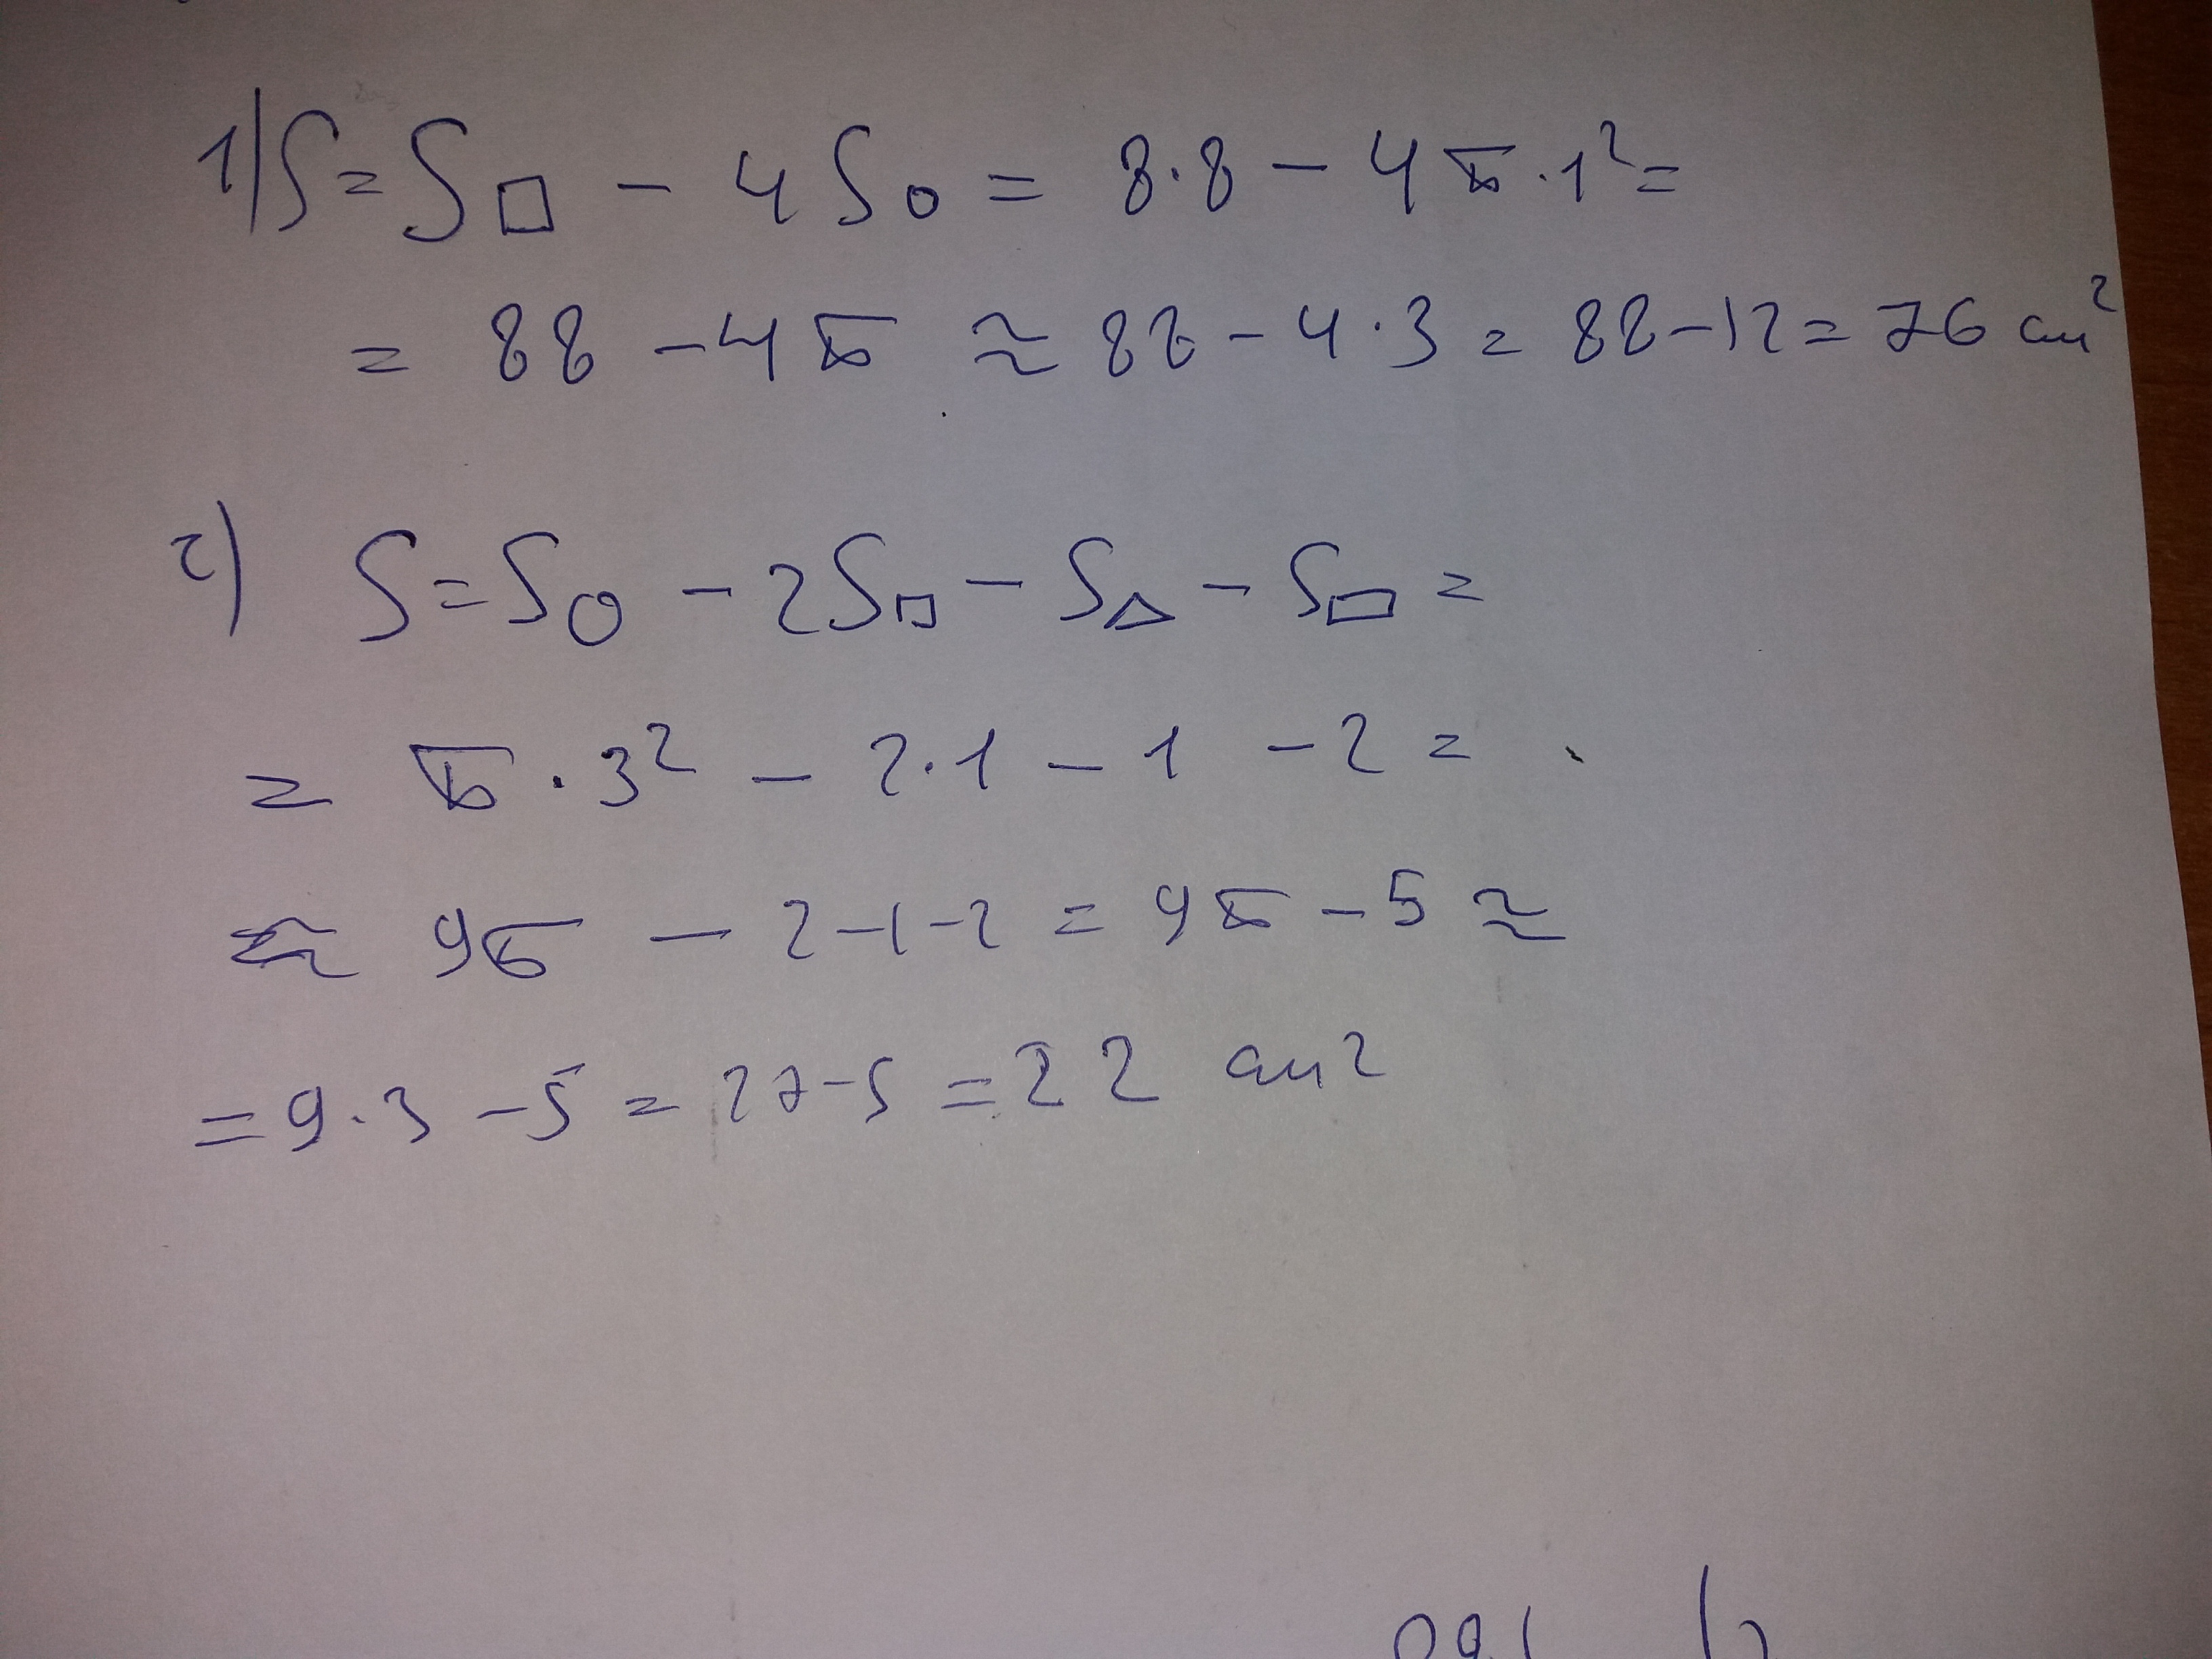 1) S = S□ - 4S○ = 8·8 - 4π·1² =
= 88 - 4π ≈ 88 - 4·3 = 88 - 12 = 76 см²
2) S = S○ - 2S□ - S△ - S▭ =
= π·3² - 2·1 - 1 - 2 =
≈ 9π - 2-1-2 = 9π - 5 ≈
= 9·3 - 5 = 27-5 = 22 см²